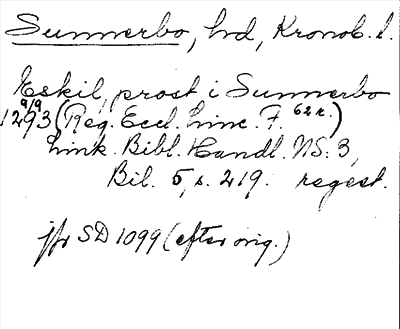 Sunnerbo, hd, Kronob. l.
Eskil, prost i Sunnerbo
9/9
1293 (Reg. Eccl. Linc. F. 62 r.)
Link. Bibl. Handl. NS. 3,
Bil. 5, s. 219. regest.
jfr SD 1099 (efter orig.)